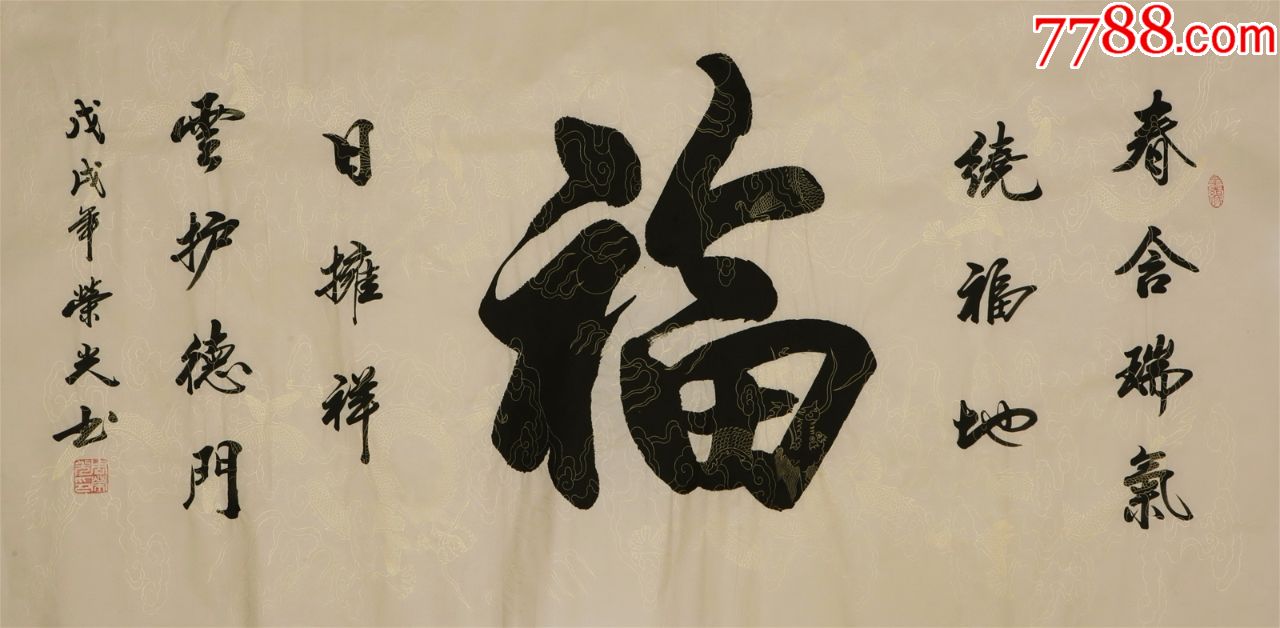 7788.com
春含瑞氣
繞福地
福
日擁祥
雲护德門
戊戌年榮光书